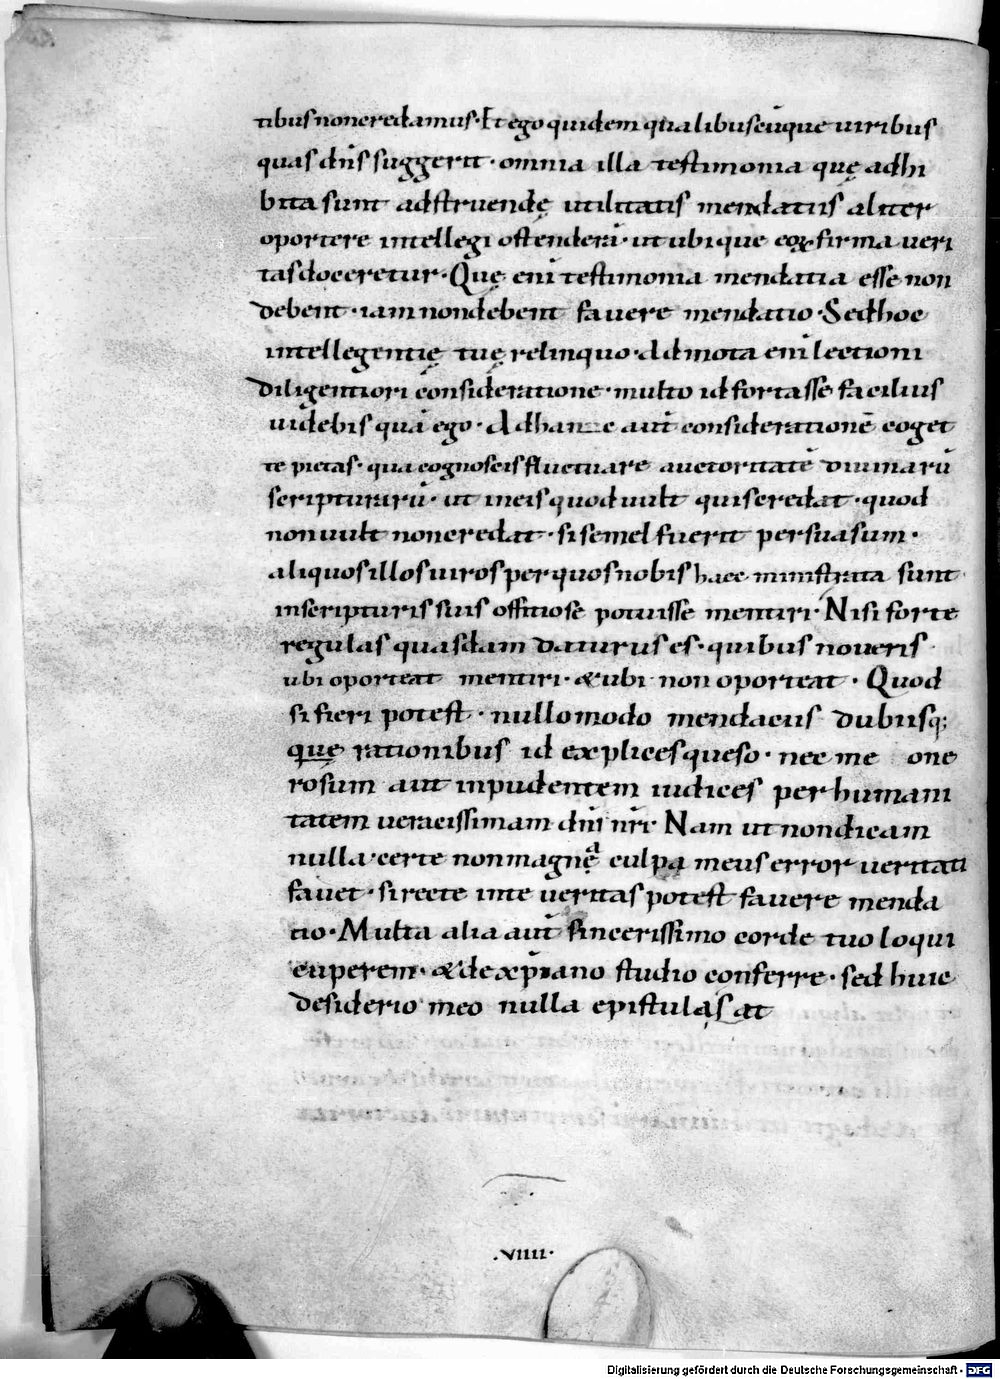 tibus non credamus· Et ego quidem qualibuscūque uiribus
quas dn̄s suggerit· omnia illa testimonia quę adhi
bita sunt adstruendę utilitatis mendatiis aliter
oportere intellegi ostenderā· ut ubique eoꝝ firma ueri
tas doceretur· Quę enī testimonia mendatia esse non
debent· iam non debent fauere mendatio· Sed hoc
intellegentię tuę relinquo· Admota enī lectioni
diligentiori consideratione· multo id fortasse facilius
uidebis quā ego· Ad hanc aut̄ considerationē coget
te pietas· qua cognoscis fluctuare auctoritatē diuinarū
scripturarū· ut in eis quod uult quis credat· quod
non uult non credat· si semel fuerit persuasum·
aliquos illos uiros per quos nobis haec ministrata sunt·
in scripturis suis offitiose potuisse mentiri· Nisi forte
regulas quasdam daturus es· quibus noueris
ubi oporteat mentiri· & ubi non oporteat· Quod
si fieri potest· nullo modo mendacus dubiisq;
que rationibus id explices queso· nec me one
rosum aut inpudentem iudices per humani
tatem ueracissimam dn̄i nr̄i· Nam ut non dicam
nulla· certe non magnę culpa meus error ueritati
fauet· si recte in te ueritas potest fauere menda
tio· Multa alia aut̄ sincerissimo corde tuo loqui
cuperem· & de xp̄iano studio conferre· sed huic
desiderio meo nulla epistula sat
·VIIII·
Digitalisierung gefördert durch die Deutsche Forschungsgemeinschaft - DFG